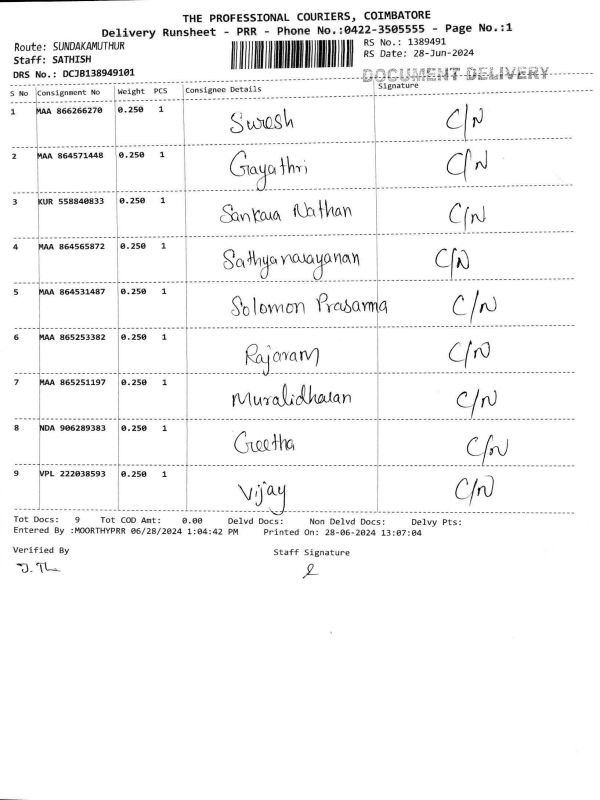 THE PROFESSIONAL COURIERS, COIMBATORE
Delivery Runsheet - PRR - Phone No.:0422-3505555 - Page No.:1
Route: SUNDAKAMUTHUR
RS No.: 1389491
Staff: SATHISH
RS Date: 28-Jun-2024
DRS No.: DCJB138949101
DOCUMENT DELIVERY
S No Consignment No Weight PCS Consignee Details Signature
1 MAA 866266270 0.250 1 Suresh C/N
2 MAA 864571448 0.250 1 Gayathri C/N
3 KUR 558840833 0.250 1 Sankara Nathan C/N
4 MAA 864565872 0.250 1 Sathyanarayanan C/N
5 MAA 864531487 0.250 1 Solomon Prasanna C/N
6 MAA 865253382 0.250 1 Rajaram C/N
7 MAA 865251197 0.250 1 Muralidharan C/N
8 NDA 906289383 0.250 1 Geetha C/N
9 VPL 222038593 0.250 1 Vijay C/N
Tot Docs: 9 Tot COD Amt: 0.00 Delvd Docs: Non Delvd Docs: Delvy Pts:
Entered By :MOORTHYPRR 06/28/2024 1:04:42 PM Printed On: 28-06-2024 13:07:04
Verified By Staff Signature